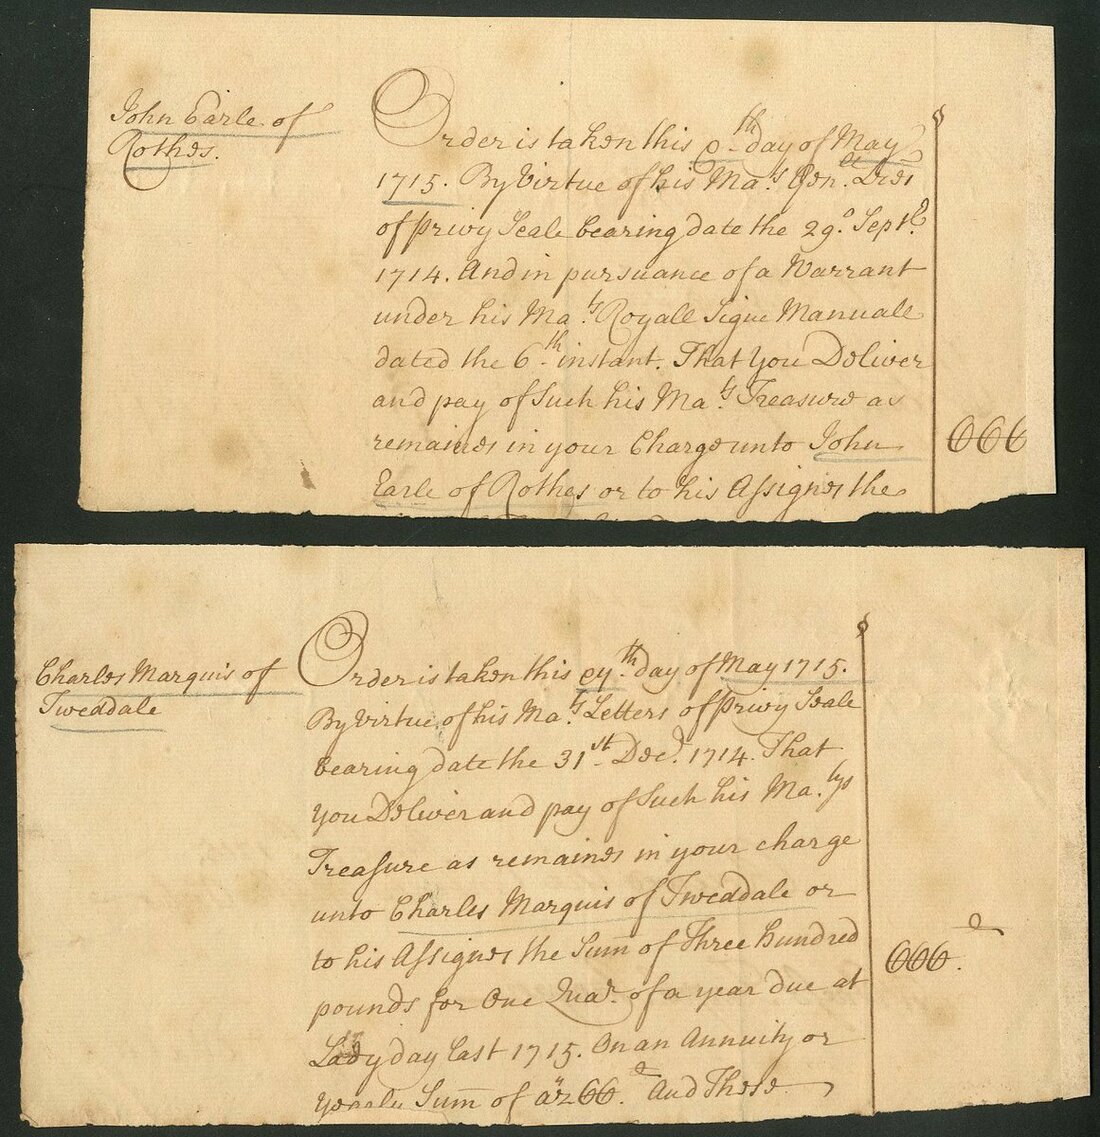 John Earle of
Rothes.
Order is taken this day of May
1715. By Virtue of his Ma.ts Gen.ll Lres
of privy Seale bearing date the 29.o Sept.
1714. And in pursuance of a Warrant
under his Ma.ts Royall Signe Manuall
dated the 6th instant. That You Deliver
and pay of Such his Ma.ts Treasure as
remaines in your Charge unto John
Earle of Rothes or to his Assignes the
Charles Marquis of
Tweddale
Order is taken this day of May 1715.
By Virtue of his Ma.ts Letters of privy Seale
bearing date the 31st Dec.r 1714. That
you Deliver and pay of Such his Ma.tys
Treasure as remaines in your charge
unto Charles Marquis of Tweddale or
to his Assignes the Sum of Three hundred
pounds for One Quar. of a year due at
Ladyday last 1715. On an Annuity or
yearly Sum of And These